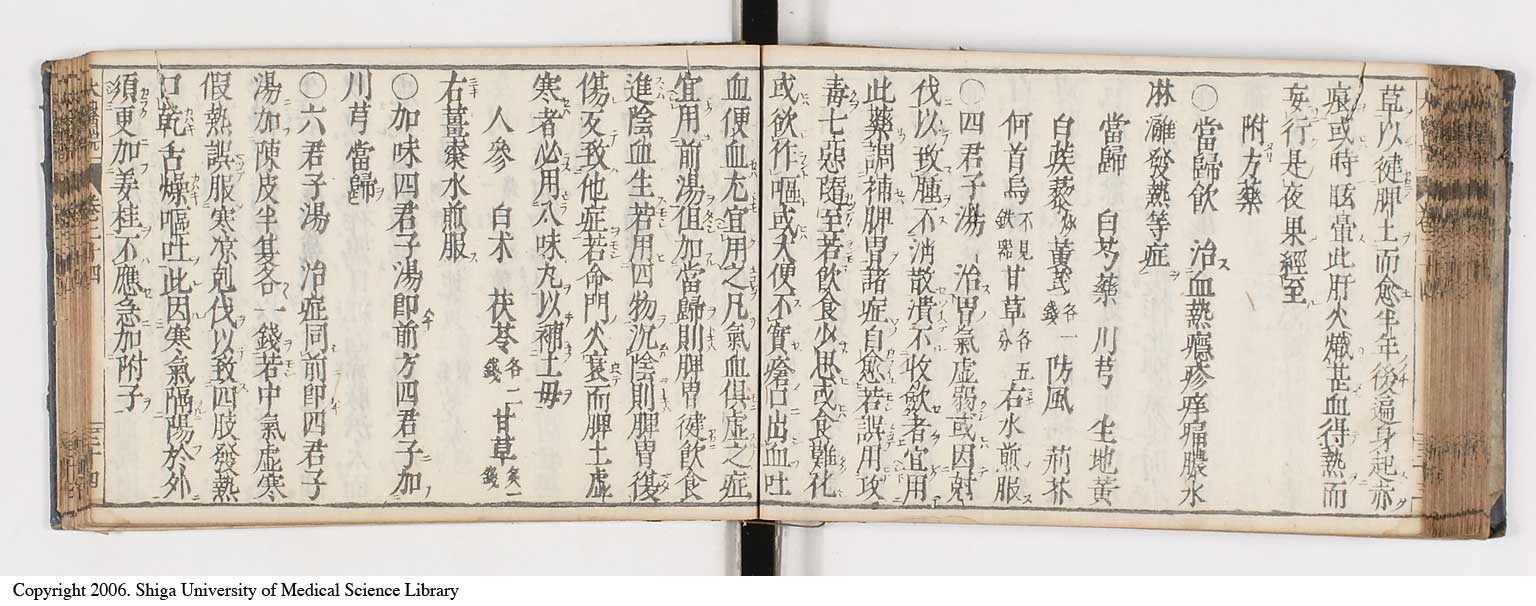 草以健脾土而愈半年後遍身起赤
痕或時眩暈此肝火熾甚血得熱而
妄行是夜果經至
附方藥
○當歸飲 治血熱癮疹痒痛膿水
淋漓發熱等症
當歸 白芍藥 川芎 生地黄
白蒺藜炒 黄芪各一錢 防風 荊芥
何首烏不見鉄器 甘草各五分 右水煎服
○四君子湯 治胃氣虚弱或因尅
伐以致腫不消散潰不收斂者宜用
此藥調補脾胃諸症自愈若誤用攻
毒七惡随至若飲食少思或食難化
或欲作嘔或大便不實瘡口出血吐
血便血尤宜用之凡氣血倶虚之症
宜用前湯但加當歸則脾胃健飲食
進陰血生若用四物沉陰則脾胃復
傷反致他症若命門火衰而脾土虚
寒者必用八味丸以補土母
人參 白术 茯苓各二錢 甘草炙一錢
右薑棗水煎服
○加味四君子湯即前方四君子加
川芎當歸
○六君子湯 治症同前即四君子
湯加陳皮半夏各一錢若中氣虚寒
假熱誤服寒凉剋伐以致四肢發熱
口乾舌燥嘔吐此因寒氣隔陽於外
須更加姜桂不應急加附子
卷二十四
三十四
Copyright 2006. Shiga University of Medical Science Library